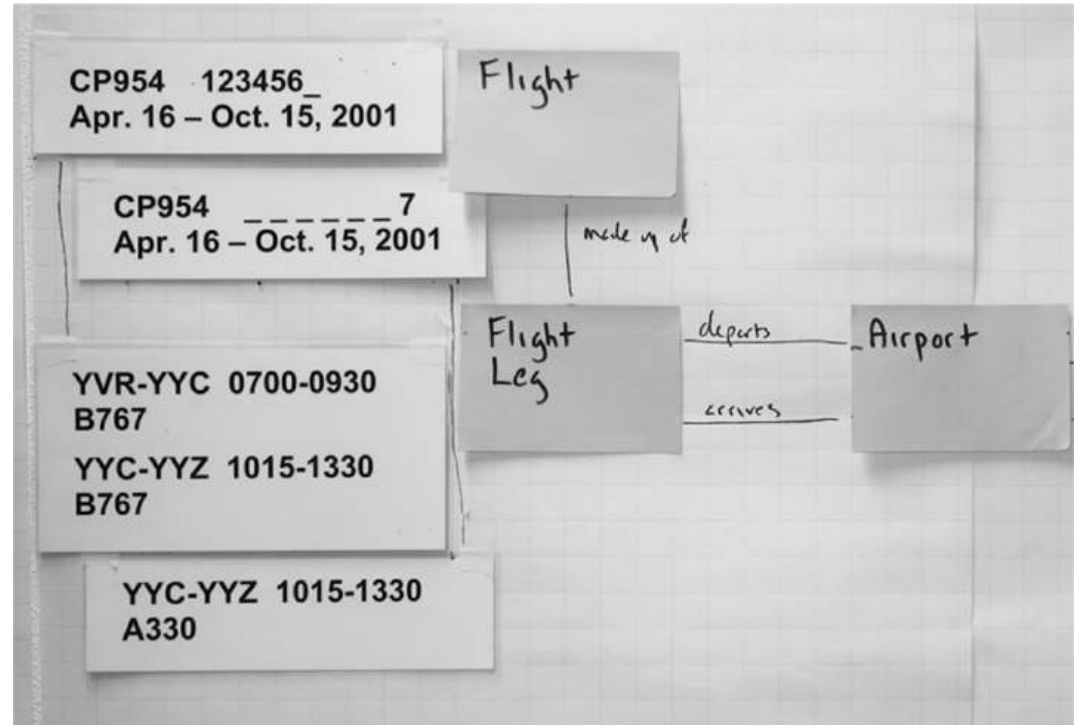 CP954 123456_
Apr. 16 – Oct. 15, 2001
CP954 _ _ _ _ _ _ 7
Apr. 16 – Oct. 15, 2001
YVR-YYC 0700-0930
B767
YYC-YYZ 1015-1330
B767
YYC-YYZ 1015-1330
A330
Flight
made up of
Flight
Leg
departs
arrives
Airport